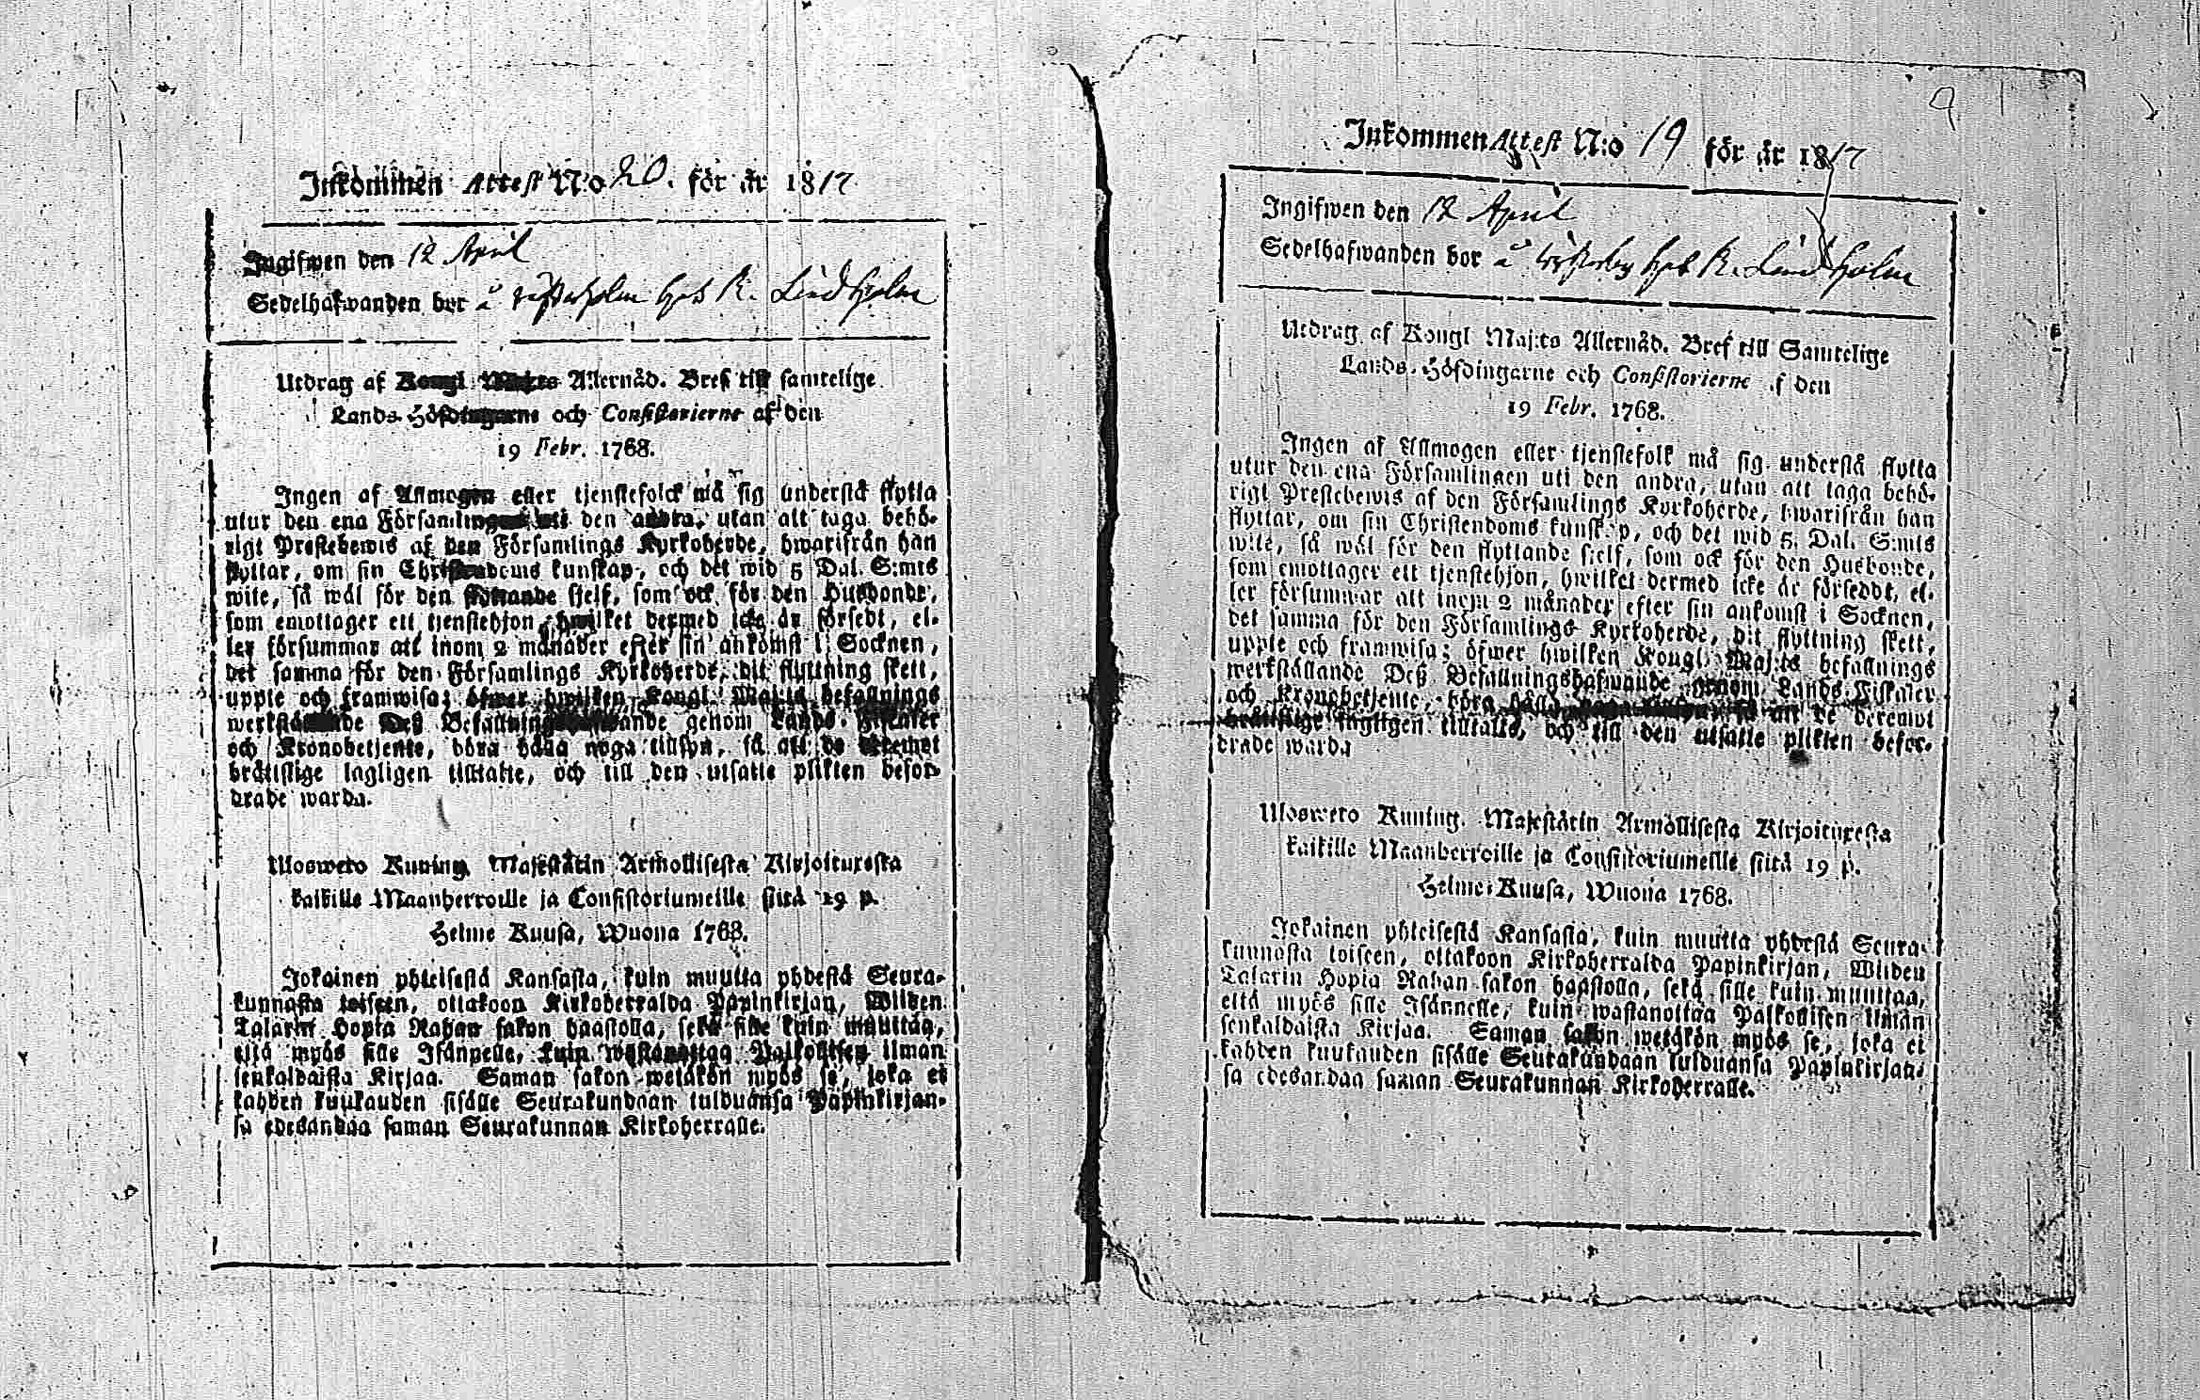 Inkommen Attest N:o 20. för år 1817
Ingifwen den 12 April
Sedelhafwanden bor å hos R. Lindholm
Utdrag af Kongl Maj:ts Allernåd. Bref till samtelige
Lands-Höfdingarne och Consistorierne af den
19 Febr. 1768.
Ingen af Allmogen eller tjenstefolck må sig understå flytta
utur den ena Församlingen uti den andra, utan att taga behö-
rigt Prestebewis af den Församlings Kyrkoherde, hwarifrån han
flyttar, om sin Christendoms kunskap, och det wid 5 Dal. S:mts
wite, så wäl för den flyttande sjelf, som ock för den Husbonde,
som emottager ett tjenstehjon, hwilket dermed icke är försedt, el-
ler försummar att inom 2 månader efter sin ankomst i Socknen,
det samma för den Församlings Kyrkoherde, dit flyttning skett,
uppte och framwisa; öfwer hwilken Kongl. Maj:ts befallnings
werkställande Deß Befallningshafwande genom Lands-Fiskaler
och Kronobetjente, böra hålla noga tillsyn, så att de deremot
bråttslige lagligen tilltalte, och till den utsatte plikten befor-
drade warda.
Ulosweto Kuning. Majestätin Armollisesta Kirjoituxesta
kaikille Maanherroille ja Consistoriumeille siitä 19 p.
Helme Kuusa, Wuona 1768.
Jokainen yhteisestä Kansasta, kuin muutta yhdestä Seura-
kunnasta toiseen, ottakoon Kirkoherralda Papinkirjan, Wiiden
Talarin Hopia Rahan sakon haastolla, sekä sille kuin muuttaa,
että myös sille Isännelle, kuin wastanottaa Palkollisen ilman
senkaldaista Kirjaa. Saman sakon wetäkön myös se, joka ei
kahden kuukauden sisälle Seurakundaan tulduansa Papinkirjan-
sa edesandaa saman Seurakunnan Kirkoherralle.
9
Inkommen Attest N:o 19 för år 1817
Ingifwen den 12 April
Sedelhafwanden bor å Westerby hos R. Lindholm
Utdrag af Kongl Maj:ts Allernåd. Bref till Samtelige
Lands-Höfdingarne och Consistorierne af den
19 Febr. 1768.
Ingen af Allmogen eller tjenstefolk må sig understå flytta
utur den ena Församlingen uti den andra, utan att taga behö-
rigt Prestebewis af den Församlings Kyrkoherde, hwarifrån han
flyttar, om sin Christendoms kunskap, och det wid 5. Dal. S:mts
wite, så wäl för den flyttande sjelf, som ock för den Husbonde,
som emottager ett tjenstehjon, hwilket dermed icke är förseddt, el-
ler försummar att inom 2 månader efter sin ankomst i Socknen,
det samma för den Församlings Kyrkoherde, dit flyttning skett,
uppte och framwisa; öfwer hwilken Kongl. Maj:ts befallnings
werkställande Deß Befallningshafwande genom Lands-Fiskaler
och Kronobetjente, böra hålla så att de deremot
bråttslige lagligen tilltalte, och till den utsatte plikten befor-
drade warda
Ulosweto Kuning. Majestätin Armollisesta Kirjoituxesta
kaikille Maanherroille ja Consistoriumeille siitä 19 p.
Helme-Kuusa, Wuona 1768.
Jokainen yhteisestä Kansasta, kuin muutta yhdestä Seura-
kunnasta toiseen, ottakoon Kirkoherralda Papinkirjan, Wiiden
Talarin Hopia Rahan sakon haastolla, sekä sille kuin muuttaa,
että myös sille Isännelle, kuin wastanottaa Palkollisen ilman
senkaldaista Kirjaa. Saman sakon wetäkön myös se, joka ei
kahden kuukauden sisälle Seurakundaan tulduansa Papinkirjan-
sa edesandaa saman Seurakunnan Kirkoherralle.